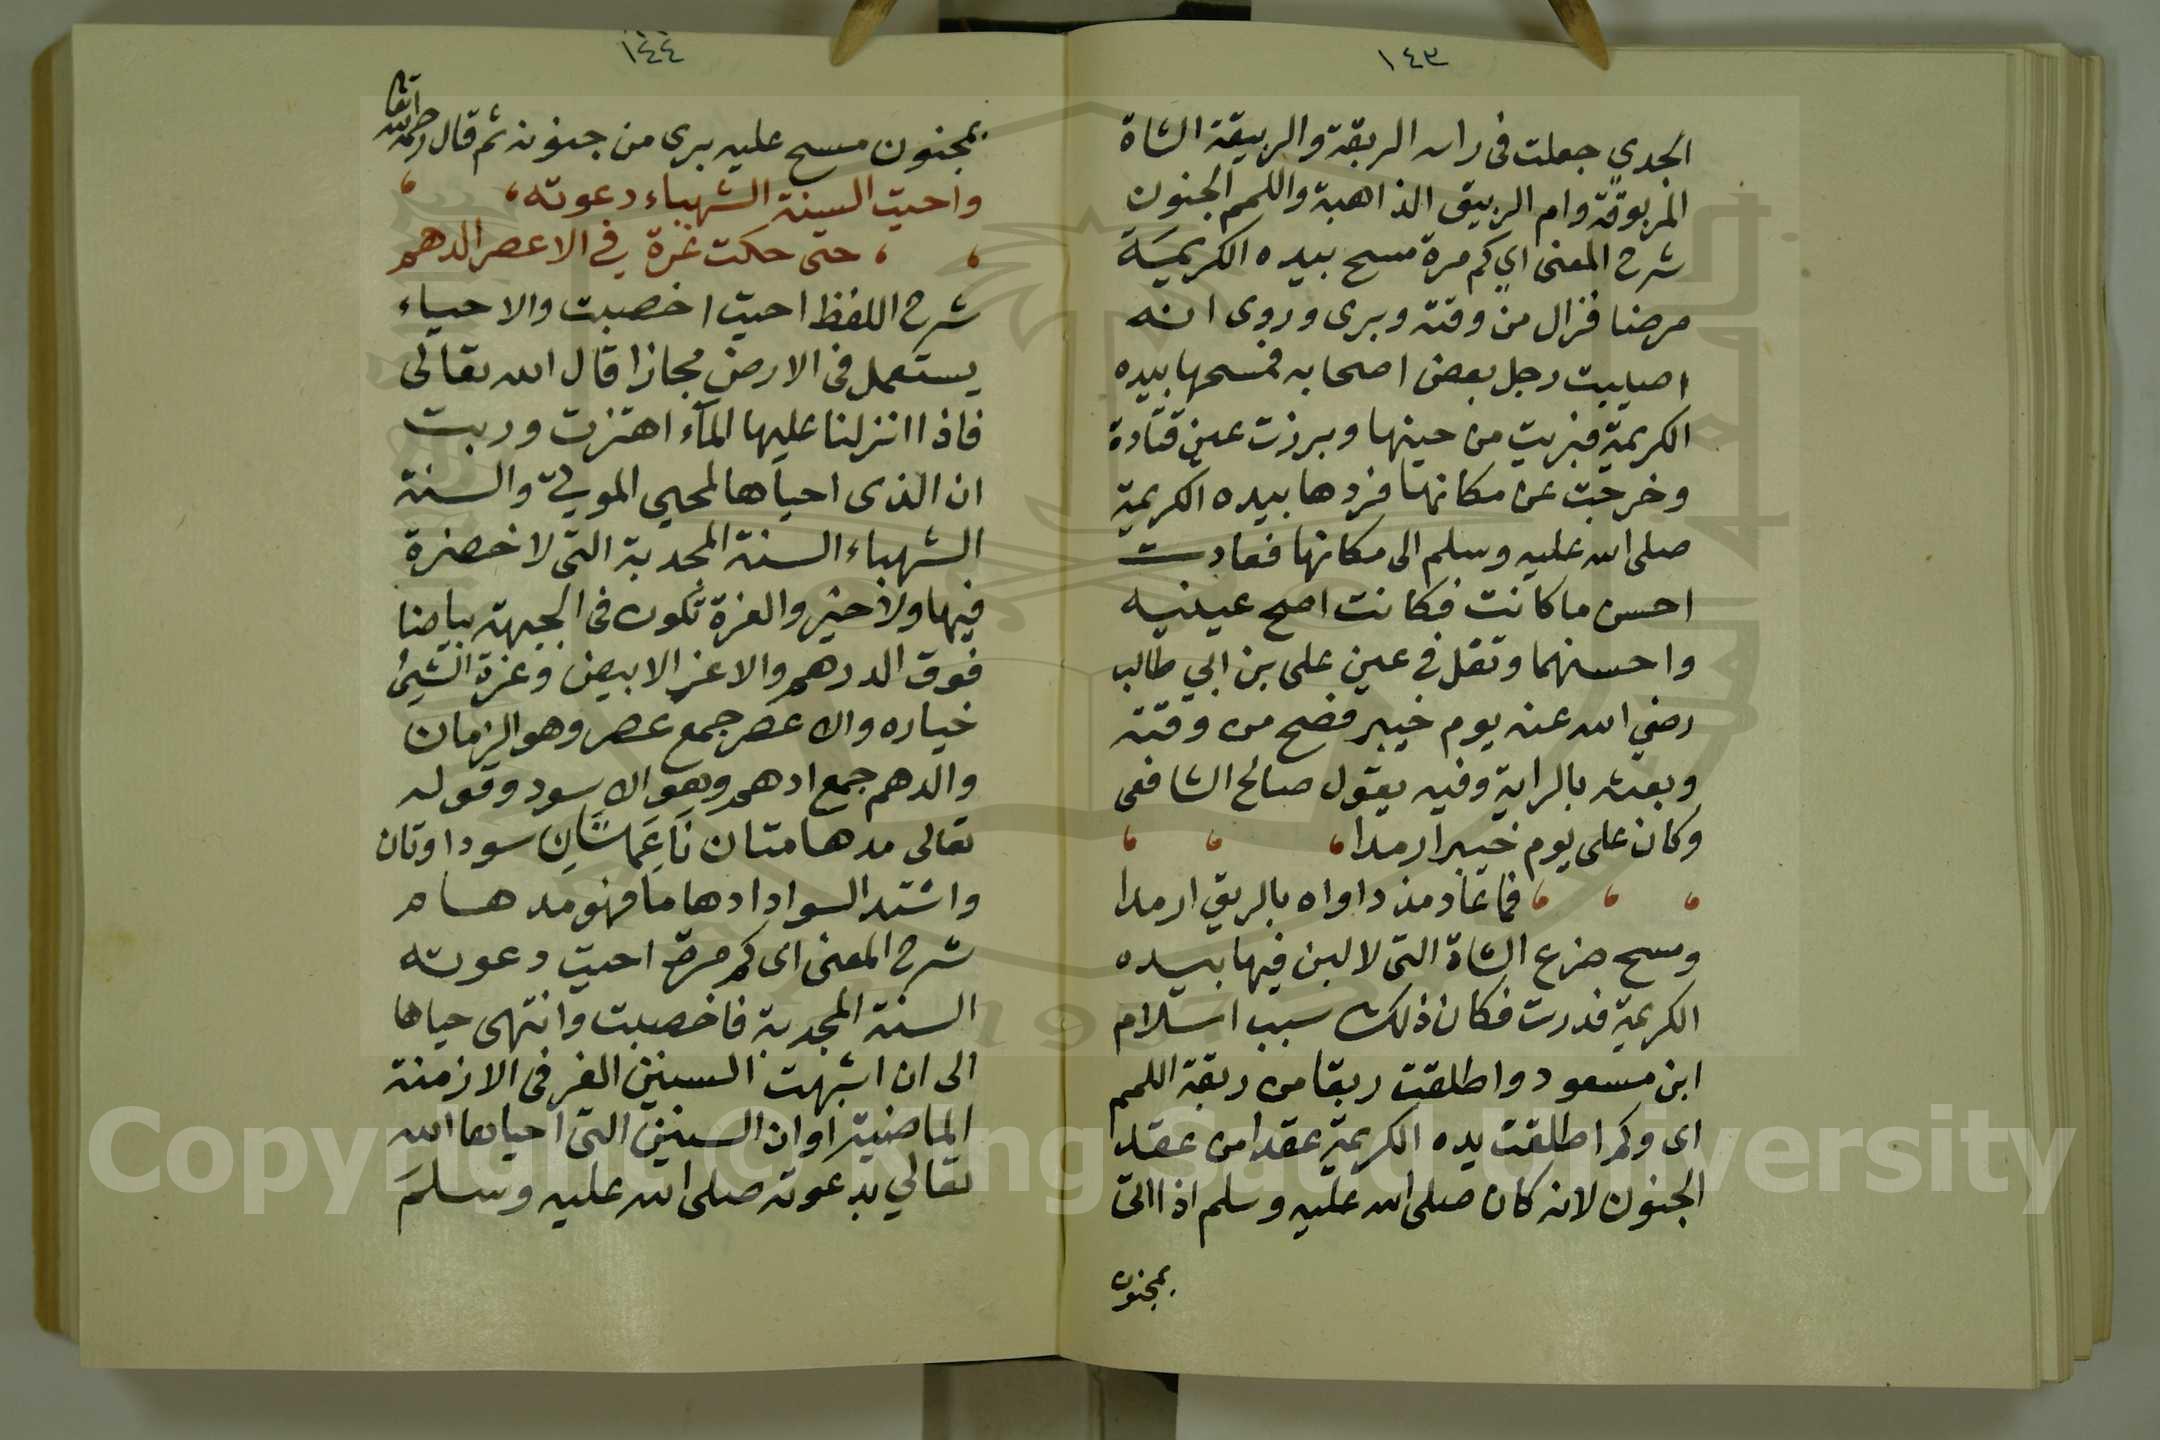 ١٤٣
الجدي جعلت في راس الربقة والربيقة الشاة
المربوقة وام الربيق الذاهبة واللمم الجنون
شرح المعنى اي كم مرة مسح بيده الكريمة
مرضا فزال من وقته وبرى وروى انه
اصيبت رجل بعض اصحابه فمسحها بيده
الكريمة فبريت من حينها وبرزت عين قتادة
وخرجت عن مكانها فردها بيده الكريمة
صلى الله عليه وسلم الى مكانها فعادت
احسن ما كانت فكانت اصح عينيه
واحسنهما وتفل في عين على بن ابي طالب
رضي الله عنه يوم خيبر فصح من وقته
وبعثه بالراية وفيه يقول صالح الشافعى
وكان على يوم خيبر ارمدا
فما عاد مذ داواه بالريق ارمدا
ومسح ضرع الشاة التى لا لبن فيها بيده
الكريمة فدرت فكان ذلك سبب اسلام
ابن مسعود واطلقت ربقا من ربقة اللمم
اى وكم اطلقت يده الكريمة عقدا من عقد
الجنون لانه كان صلى الله عليه وسلم اذا اتى
بمجنون
١٤٤
بمجنون مسح عليه برى من جنونه ثم قال رحمه الله تعالى
واحيت السنة الشهباء دعوته
حتى حكت غرة في الاعصر الدهم
شرح اللفظ احيت اخصبت والاحياء
يستعمل فى الارض مجازا قال الله تعالى
فاذا انزلنا عليها المآء اهتزت وربت
ان الذى احياها لمحيي الموتى والسنة
الشهباء السنة المجدبة التى لا خضرة
فيها ولا خير والغرة تكون فى الجبهة بياضا
فوق الدرهم والاغر الابيض وغرة الشيئ
خياره والاعصر جمع عصر وهو الزمان
والدهم جمع ادهم وهو الاسود وقوله
تعالى مدهامتان ناعمتان سوداوتان
واشتد السواد ادهاما فهو مدهام
شرح المعنى اى كم مرة احيت دعوته
السنة المجدبة فاخصبت وانتهى حياها
الى ان اشبهت السنين الغر فى الازمنة
الماضية او ان السنين التى احياها الله
تعالي بدعوته صلى الله عليه وسلم
Copyright © King Saud University